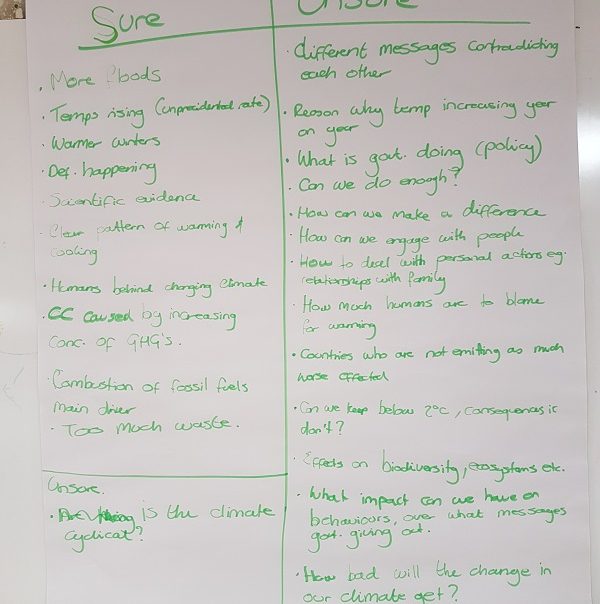 Sure
· More floods
· Temps rising (unprecidented rate)
· Warmer winters
· Def. happening
· Scientific evidence
· Clear pattern of warming &
cooling
· Humans behind changing climate
· CC caused by increasing
conc. of GHG's.
· Combustion of fossil fuels
main driver
· Too much waste.
Unsore.
· is the climate
cyclical?
Unsure
· different messages contradicting
each other
· Reason why temp increasing year
on year
· What is govt. doing (policy)
· Can we do enough?
· How can we make a difference
· How can we engage with people
· How to deal with personal actions eg.
relationships with family
· How much humans are to blame
for warming
· Countries who are not emitting as much
worse effected
· Can we keep below 2°C, consequences if
don't?
· Effects on biodiversity, ecosystems etc.
· What impact can we have on
behaviours, over what messages
govt. giving out.
· How bad will the change in
our climate get?